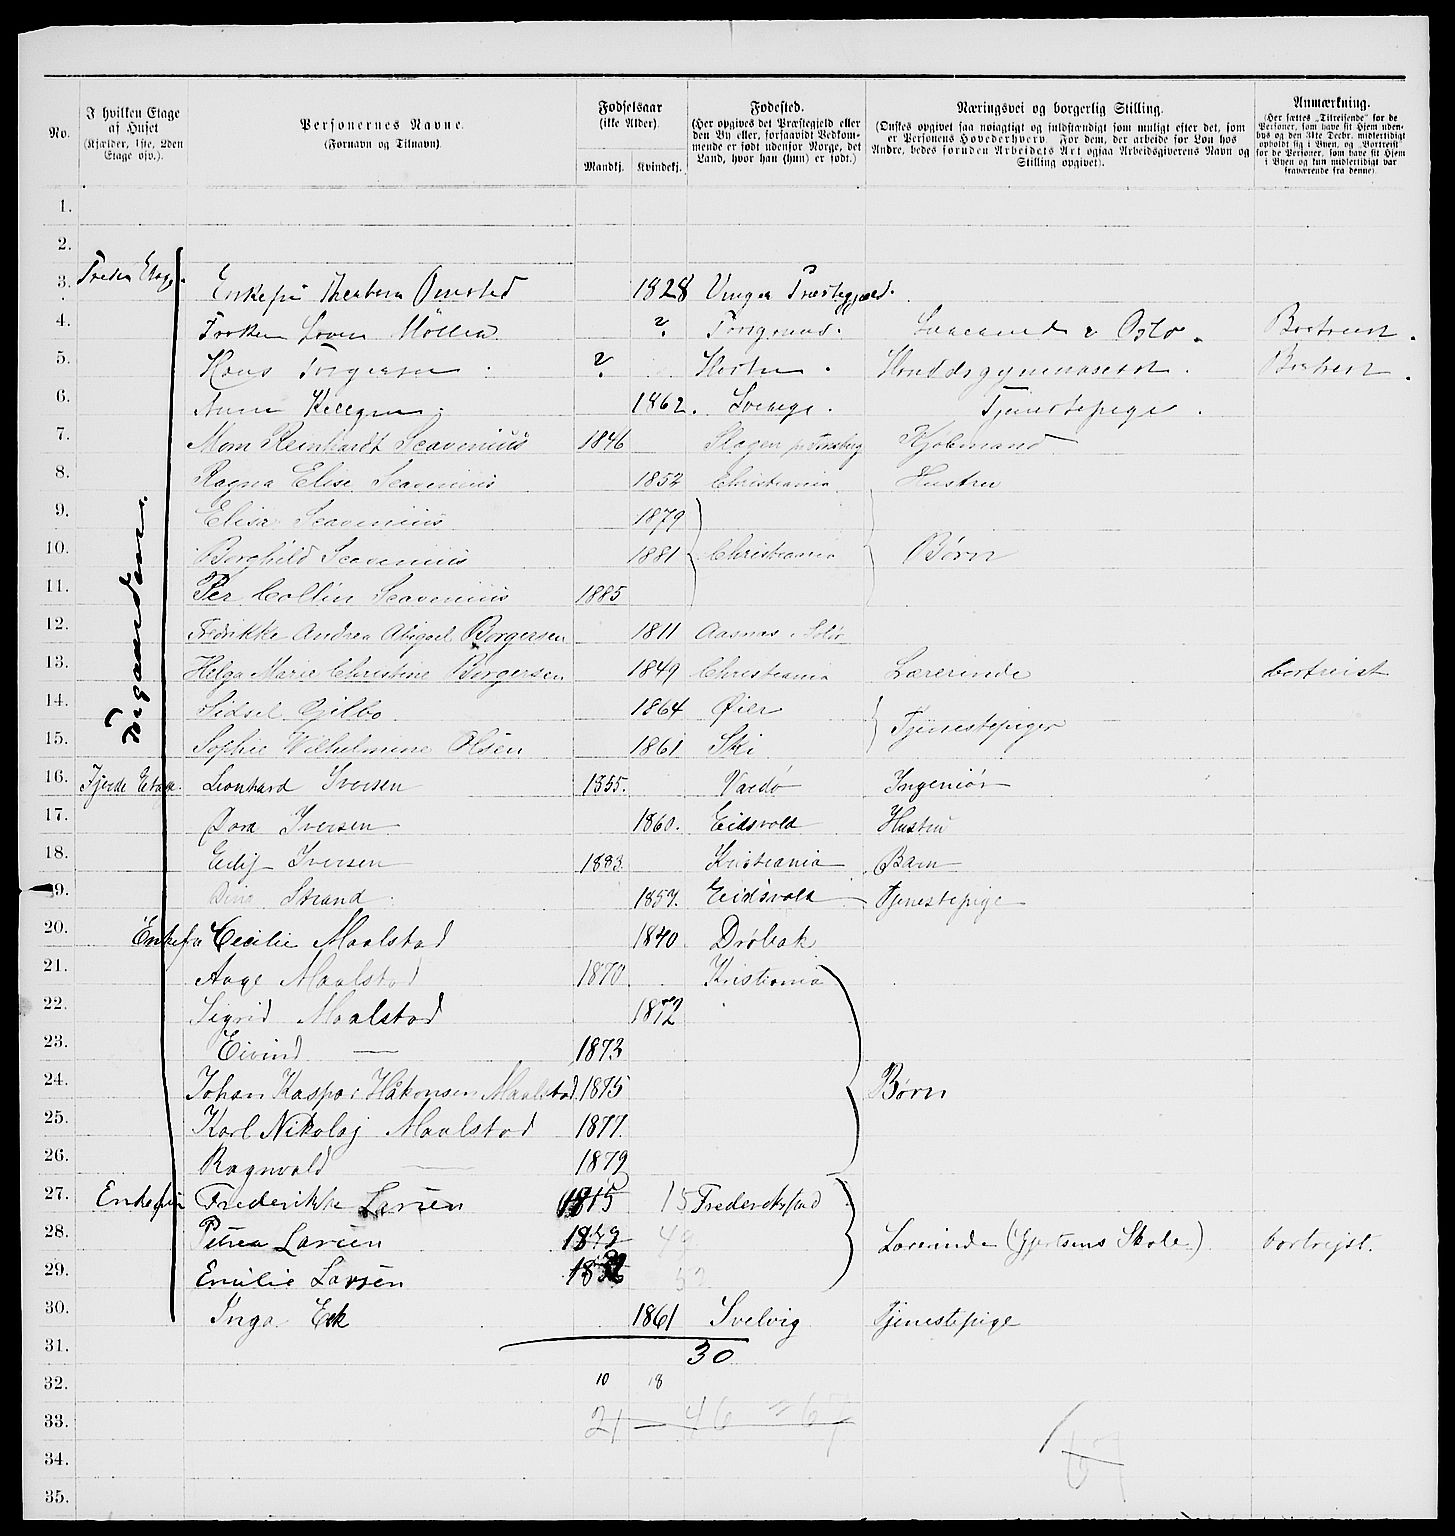 No.
I hvilken Etage af Huset (Kjælder, 1ste, 2den Etage osv.).
Personernes Navne. (Fornavn og Tilnavn)
Fødselsaar (ikke Alder).
Mandkj. Kvindekj.
Fødested.
(Her opgives det Præstegjeld eller
den By eller, forsaavidt Vedkom-
mende er født udenfor Norge, det
Land, hvor han (hun) er født.)
Næringsvei og borgerlig Stilling.
(Ønskes opgivet saa nøiagtigt og fuldstændigt som muligt efter det, som
er Personens Hovederhverv. For dem, der arbeide for Løn hos
Andre, bedes foruden Arbeidets Art ogsaa Arbeidsgiverens Navn og
Stilling opgivet).
Anmærkning.
(Her sættes „Tilreisende" for de
Personer, som have sit Hjem uden-
bys og den 31te Decbr. midlertidigt
opholdt sig i Byen, og „Bortreist"
for de Personer, som have sit Hjem
i Byen og kun midlertidigt var
fraværende fra denne).
1.
2.
3. Tredie Etage. Enkefru Omsted 1828 Præstegjæld.
4. Frøken Møller ? Bortreist.
5. Hans Torgersen ? Horten. Bortreist.
6. 1862. Sverige. Tjenestepige.
7. Reinhardt Scavenius 1846 Slagen pr Tønsberg Kjøbmand
8. Ragna Elise Scavenius 1852 Christiania Hustru
9. Elisa Scavenius 1879
10. Borghild Scavenius 1881 Christiania Børn
11. Per Collin Scavenius 1885
12. Fredrikke Andrea Abigael Borgersen 1811 Aasnas i Solør
13. Helga Marie Christine Borgersen 1849 Christiania Lærerinde bortreist
14. Sidsel Gilbo 1864 Øier
Tjenestepiger
15. Sophie Wilhelmine Olsen 1861 Ski
Forgaarden.
16. Fjerde Etage. Leonhard Iversen 1855. Vardø Ingeniør
17. Dora Iversen 1860. Eidsvold Hustru
18. Iversen 1883 Kristiania Barn
19. Strand 1857. Eidsvold Tjenestepige
20. Enkefru Cecilie Maalstad 1840 Drøbak
21. Aage Maalstad 1870 Kristiania
22. Sigrid Maalstad 1872
23. Eivind — 1873
24. Johan Kaspar Håkonsen Maalstad 1875 Børn
25. Karl Nikolaj Maalstad 1877.
26. Ragnvald — 1879
27. Enkefru Frederikke Larsen 1815 15 Frederikstad
28. Petrea Larsen 1849 49 Lærerinde (Gjertsens Skole) bortrejst.
29. Emilie Larsen 1852 52
30. Inga Eek 1861 Svelvig Tjenestepige
31. 30
32. 10 18
33. 21 — 46 = 67
34. 67
35.